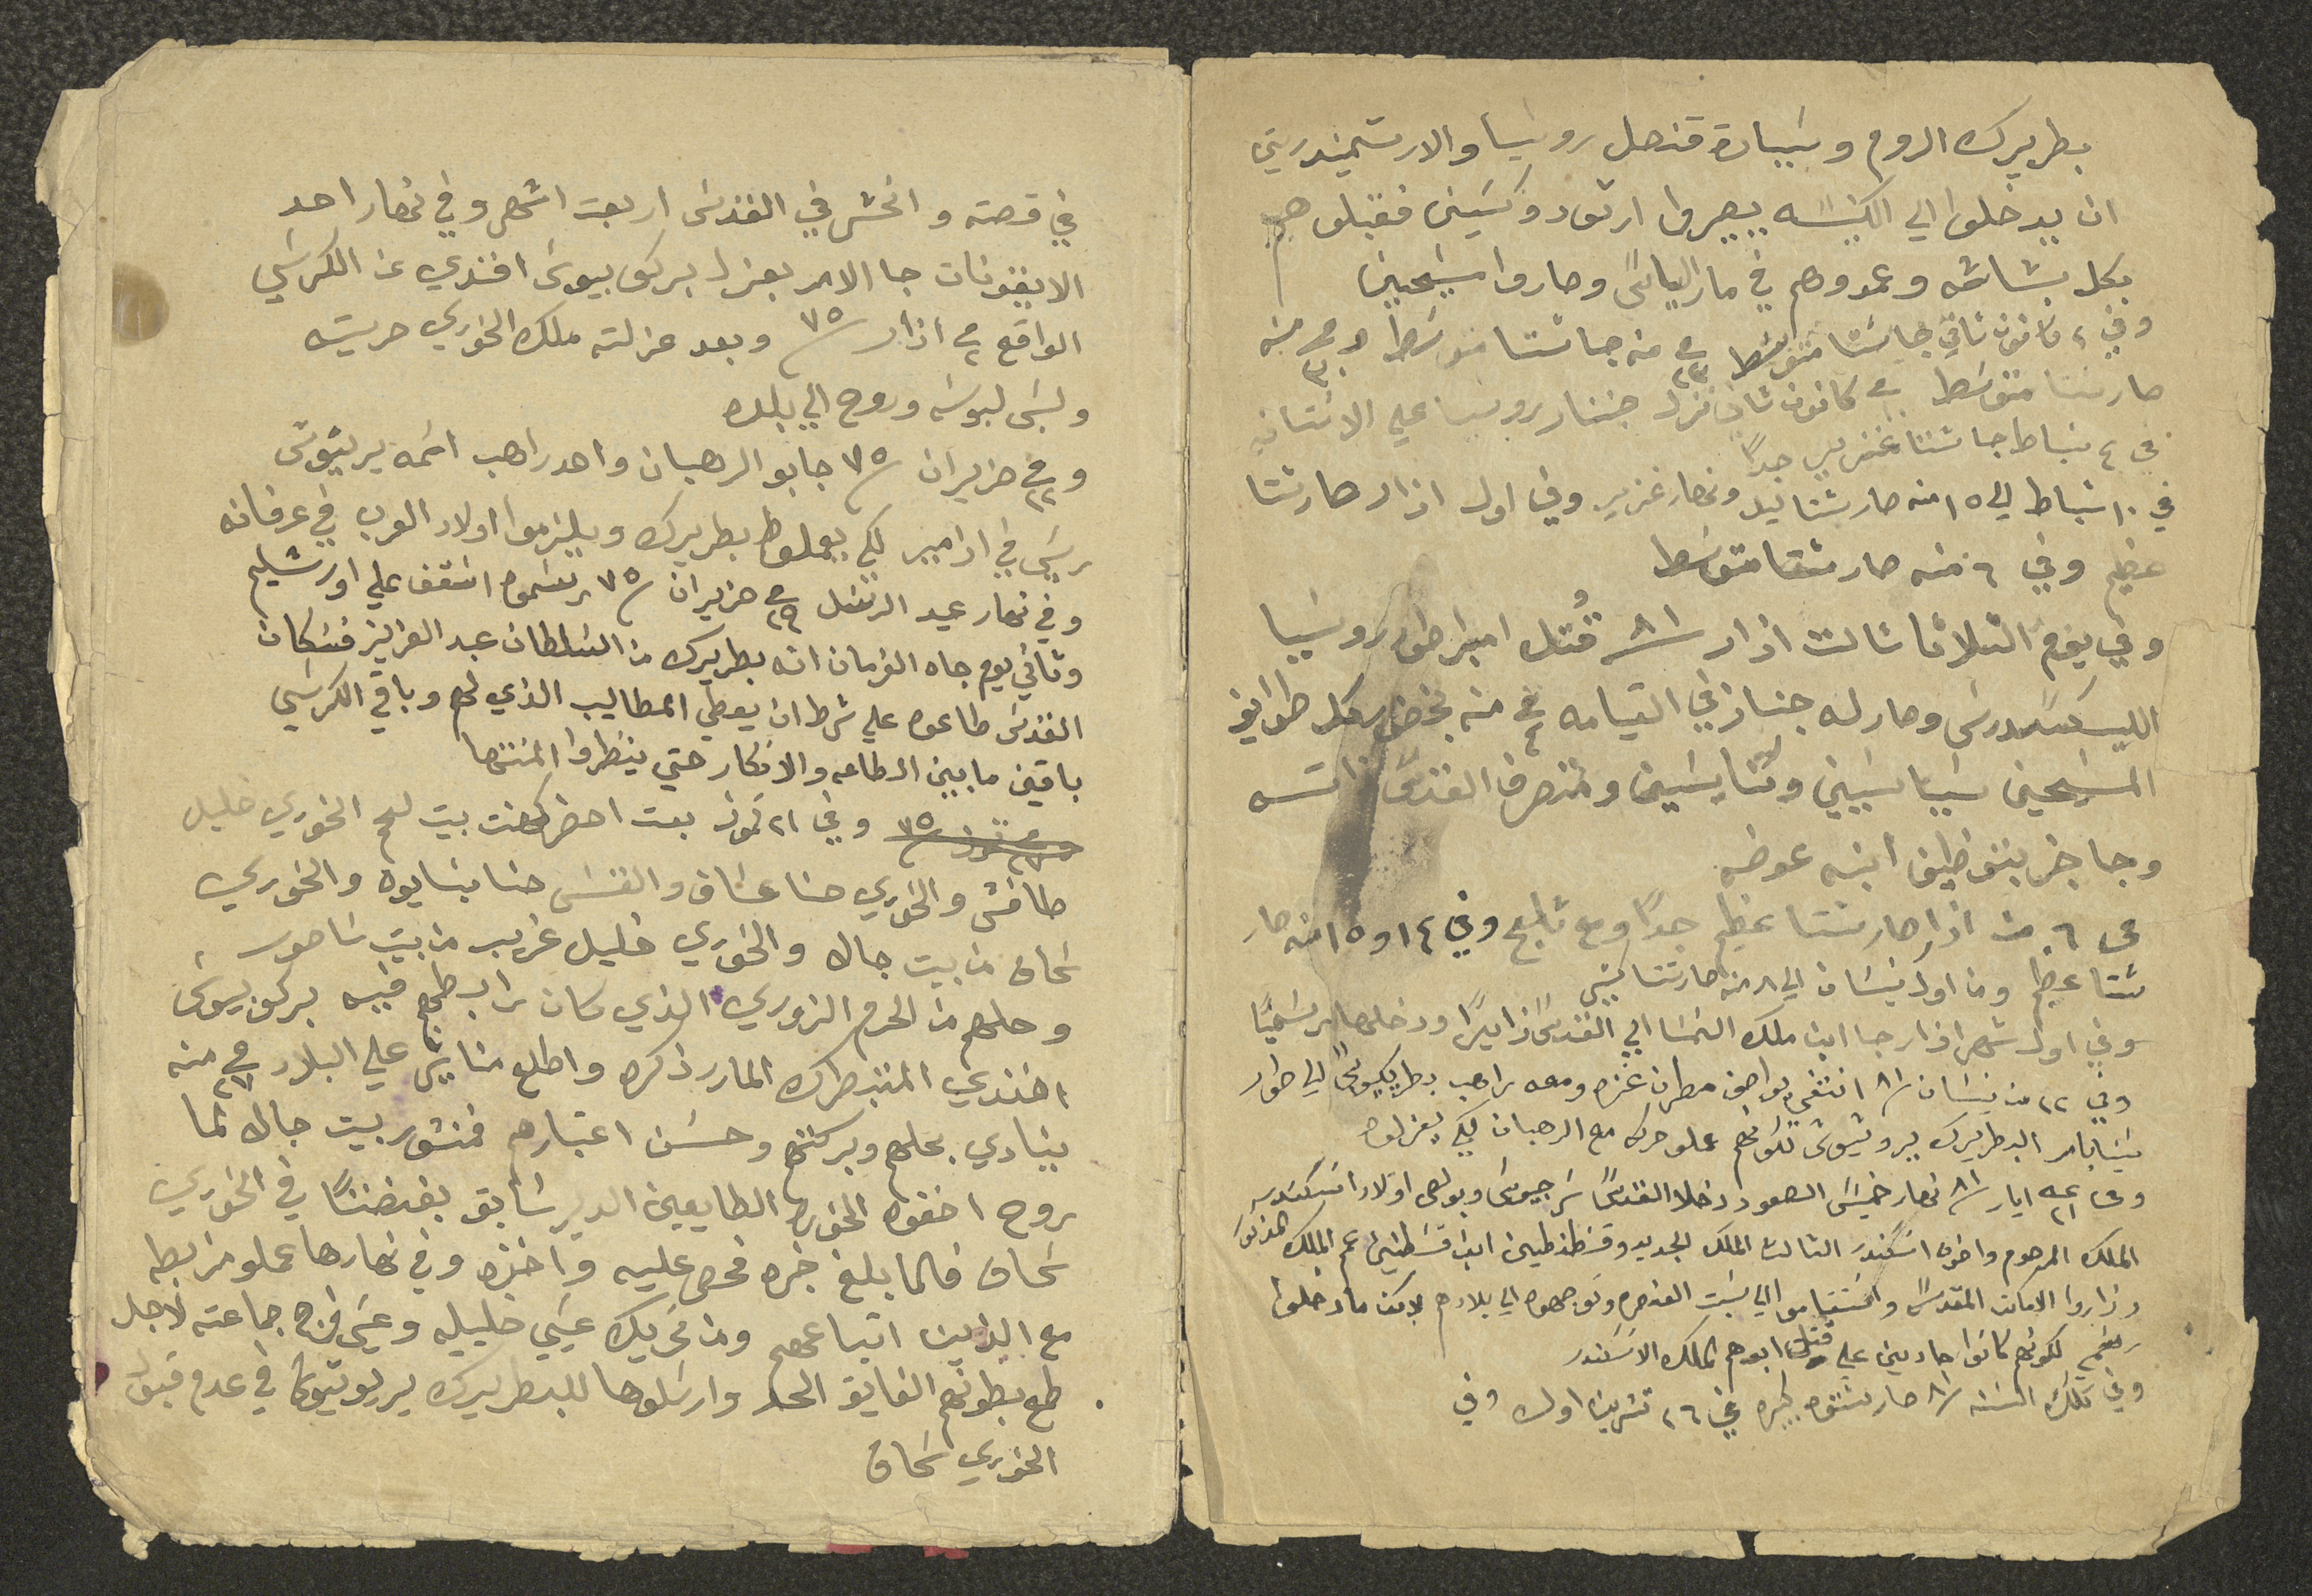 بطريرك الروم وسيادة قنصل روسيا والارشمندريتي
ان يدخلوا الي الكنيسه يصيروا ارتودوكسيين فقبلوهم
بكل بشاشه وعمدوهم في مار الياس وصاروا مسيحيين
وفي ٢ كانون ثاني جا شتا متوسط في ٢٣ منه جا شتا متوسط في ٣٠ منه
صار شتا متوسط في كانون ثاني نزل جنار روسيا علي الاستانه
في ٤ شباط جا شتا غزير جداً
في ١٠ شباط الي ١٥ منه صار شتا ليل ونهار غزير وفي اول اذار صار شتا
عظيم وفي ٦ منه صار شتا متوسط
وفي يوم الثلاثا ثالث اذار سنة ٨١ قُتل امبراطور روسيا
اليسكندرس وصار له جناز في القيامه في ٤ منه بحضور كل طوايف
المسيحين سيباسيين وكنايسيين ومتصرف القدس ذاته
وجا خبر بتوظيف ابنه عوضه
في ٦ من اذار صار شتا عظيم جداً ومع ثلج وفي ١٤ و ١٥ منه صار
شتا عظيم ومن اول نيسان الي ٨ منه صار شتا
وفي اول شهر اذار جا ابن ملك النمسا الي القدس زايراً ودخلها رسمياً
وفي ١٢ من نيسان سنة ٨١ انتفي يواصف مطران غزه ومعه راهب بطريكيوس الي طور
سينا بامر البطريرك يروثيوس لكونهم عملو حركه مع الرهبان لكي يعزلوه
وفي ٢١ ايار سنة ٨١ نهار خميس الصعود دخلا القدس سرجيوس وبولص اولاد اسكندر
الملك المرحوم واخوة اسكندر الثالث الملك الجديد وقسطنطين ابن قسطنطين عم الملك المذكور
وزاروا الاماكن المقدسه واستقاموا الي سبت العنصره وتوجهوا الي بلادهم لاكن ما دخلوا
رسمي لكونهم كانوا حادين علي قتل ابوهم الملك الاسكندر
وفي تلك السنه سنة ٨١ صار شتوه كبيره في ٢٦ تشرين اول وفي
في قصته وانحشر في القدس اربعت اشهر وفي نهار احد
الايقونات جا الامر بعزل بركوبيوس افندي عن الكرسي
الواقع في ٢ اذار سنة ٧٥ وبعد عزلته ملك الخوري حريته
ولبس لبوسه وروح الي بلده
وفي ٢٢ حزيران سنة ٧٥ جابو الرهبان واحد راهب اسمه يريثيوس
ريس في ازامير لكي يعملوه بطريرك ويلزموا اولاد العرب في عرفانه
وفي نهار عيد الرسل في ٢٩ حزيران سنة ٧٥ رسموه اسقف علي اورشليم
وثاني يوم جاه الفرمان انه بطريرك من السلطان عبد العزيز فسكان
القدس طاعوه علي شرط ان يعطي المطاليب الذي لهم وباقي الكرسي
باقين ما بين الطاعه والانكار حتي ينظروا المنتها
وفي ٢١ تموز بعت احضر كهنت بيت لحم الخوري خليل
طافش والخوري حنا عساف والقس حنا بنايوه والخوري
سحاق من بيت جالا والخوري خليل غريب من بيت ساحور
وحلهم من الحرم الزوري الذي كان رابطهم فيه بركوبيوس
افندي المتبطرك المار ذكره واطلع مناشير علي البلاد في ٢٧ منه
بينادي بحلهم وبركتهم وحسن اعتبارهم فمنشور بيت جالا لما
روح اخفوه الخوره الطايعين الدير سابق بغضتاً في الخوري
سحاق فالما بلغ خبره فحص عليه واخذه وفي نهارها عملو مزبطه
مع الذين اتباعهم ومن تحريك عيسي خليليه وعيسي فرح جماعته لاجل
طمع بطونهم الفايق الحد وارسلوها للبطريرك يريوثيوس في عدم قبول
الخوري سحاق